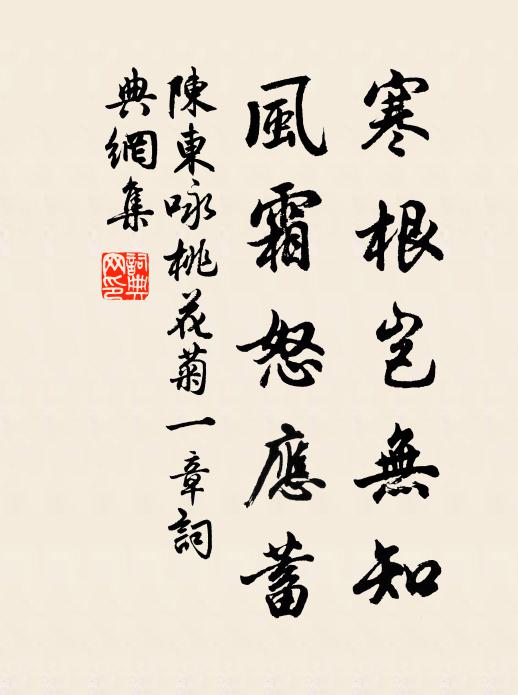 寒根豈無知
風霜怒應蓄
陳東咏桃花菊一章詞
典網集
詞典網印